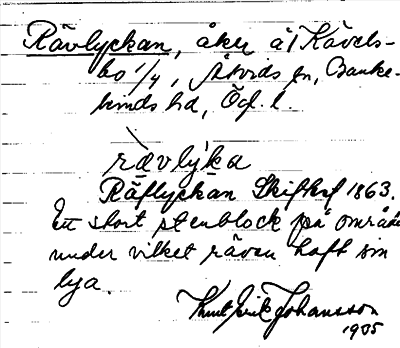 Rävlyckan, åker å 1 Kävels-
bo 1/4, Åtvids sn, Banke-
kinds hd, Ög. l.
rävlyka
Räflyckan Skifkrf 1863.
Ett stort stenblock på område
under vilket räven haft sin
lya.
Knut Erik Johansson
1935